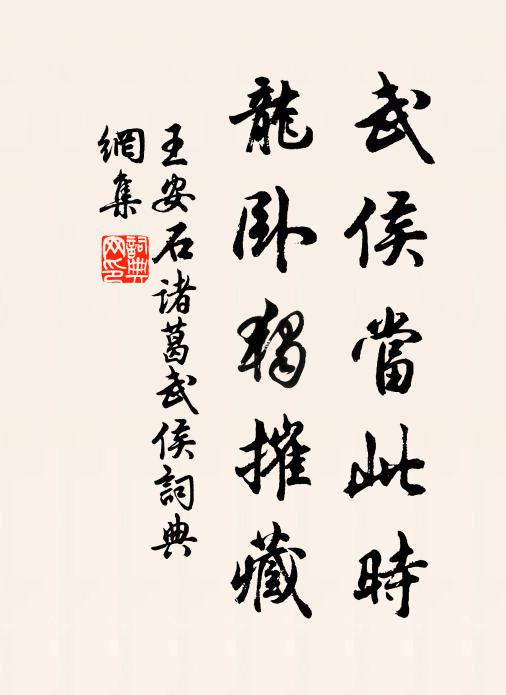 武侯當此時
龍卧獨摧藏
王安石諸葛武侯詞典
網集
詞典
网印